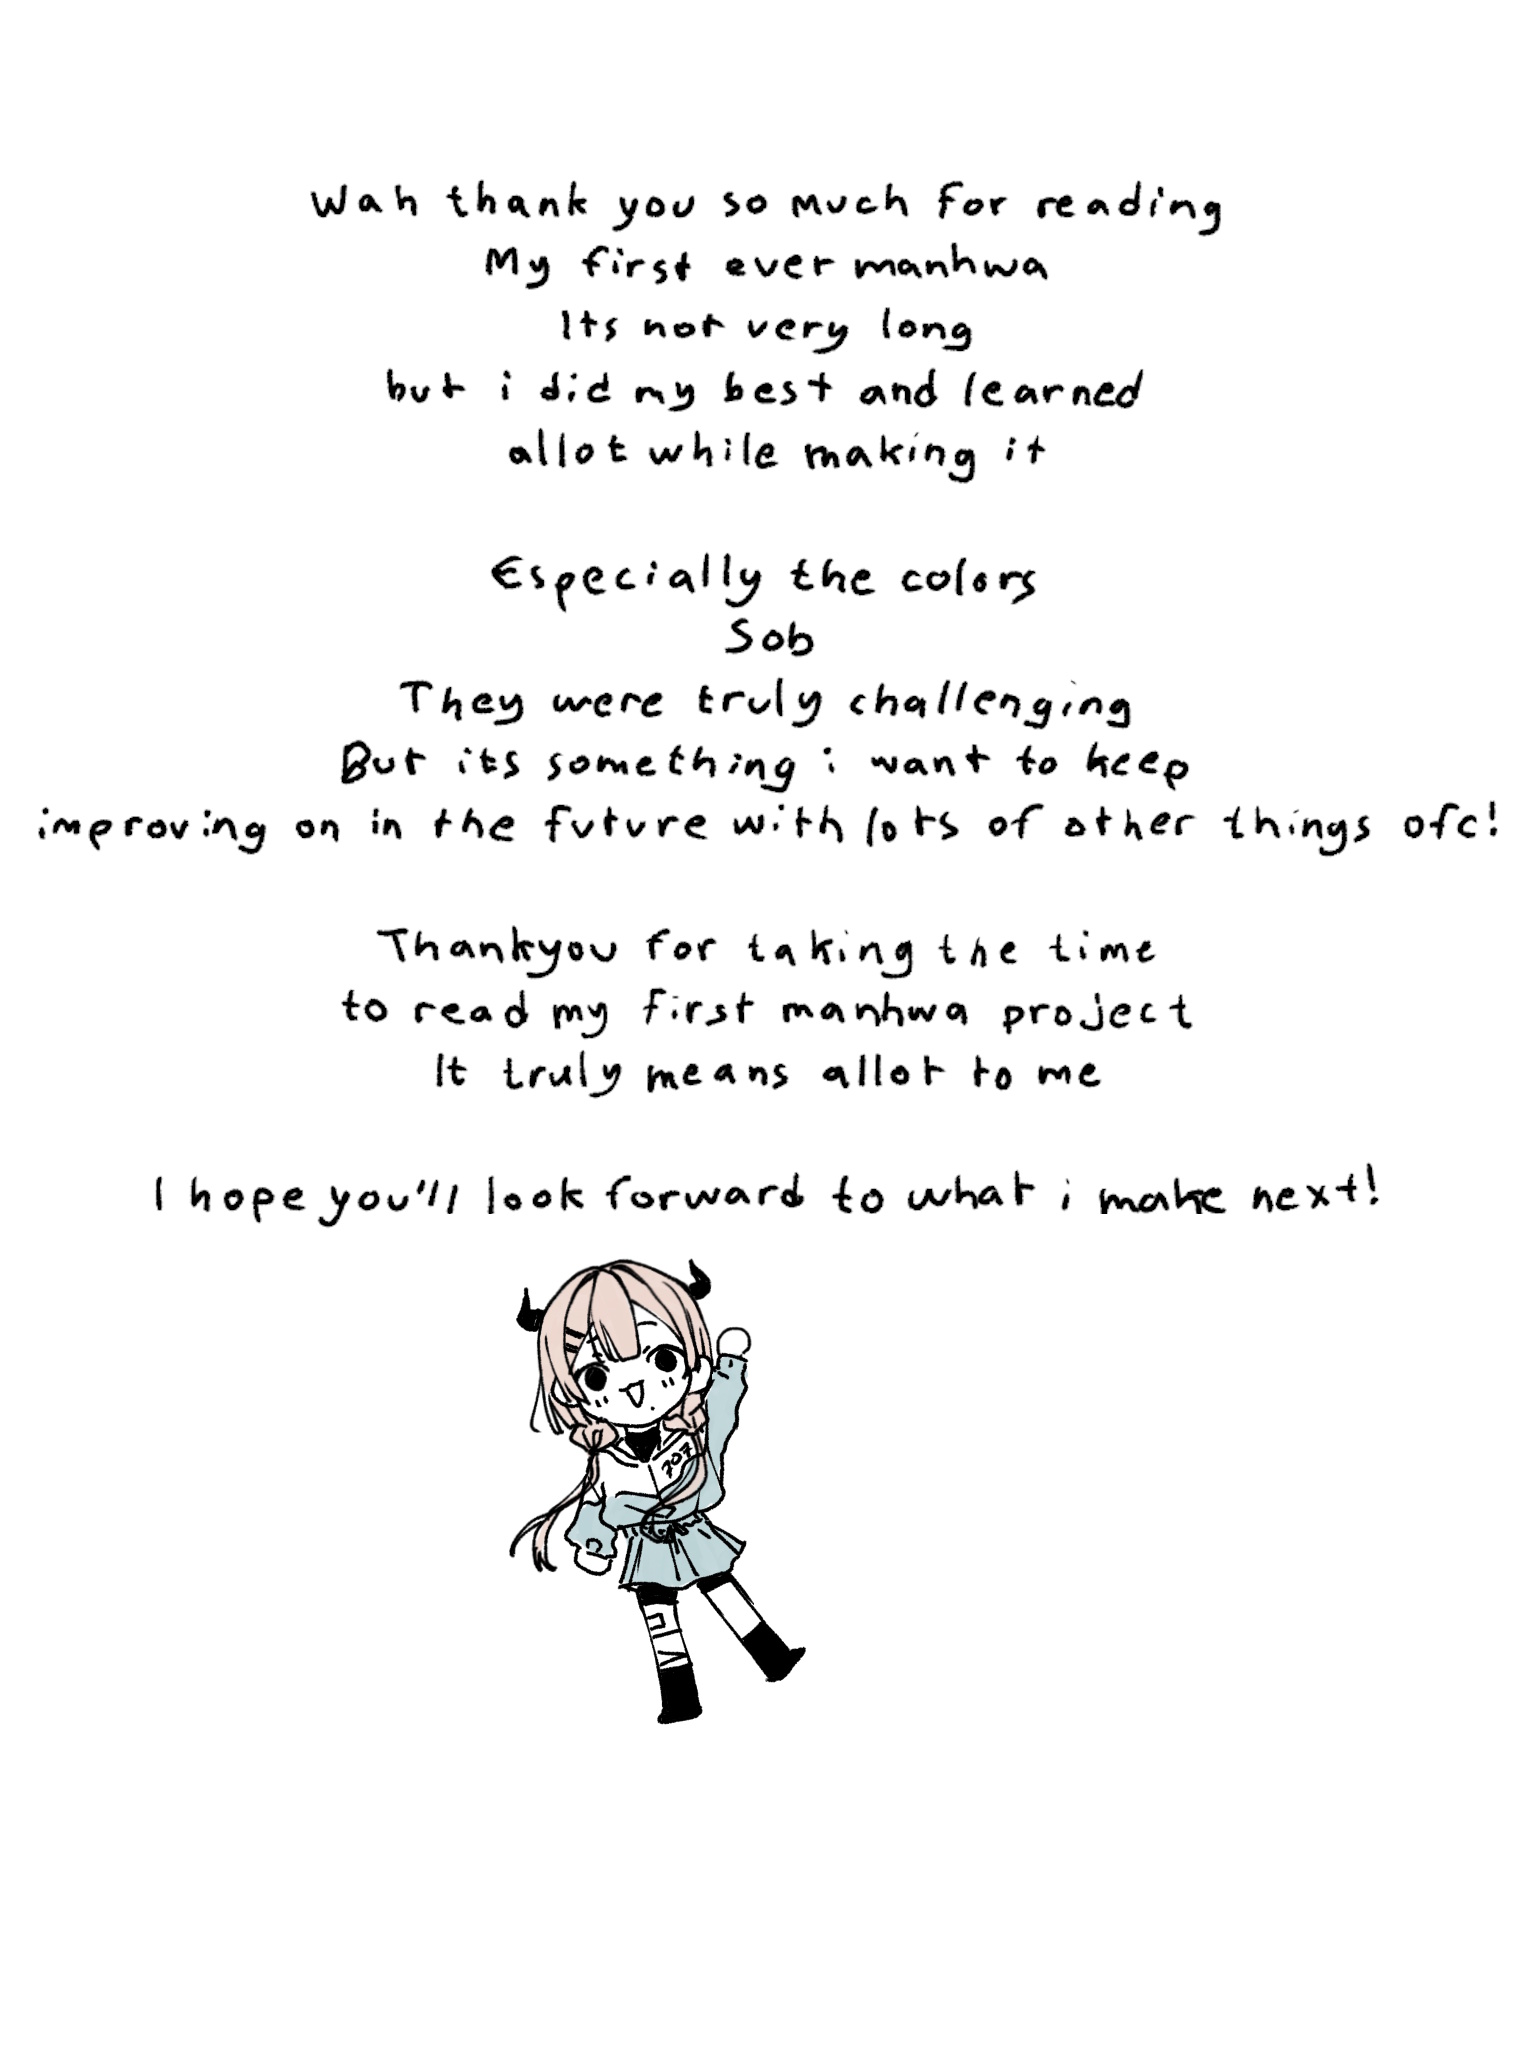 Wah thank you so much for reading
My first ever manhwa
Its not very long
but i did my best and learned
allot while making it
Especially the colors
Sob
They were truly challenging
But its something i want to keep
improving on in the future with lots of other things ofc!
Thankyou for taking the time
to read my first manhwa project
It truly means allot to me
I hope you'll look forward to what i make next!
707